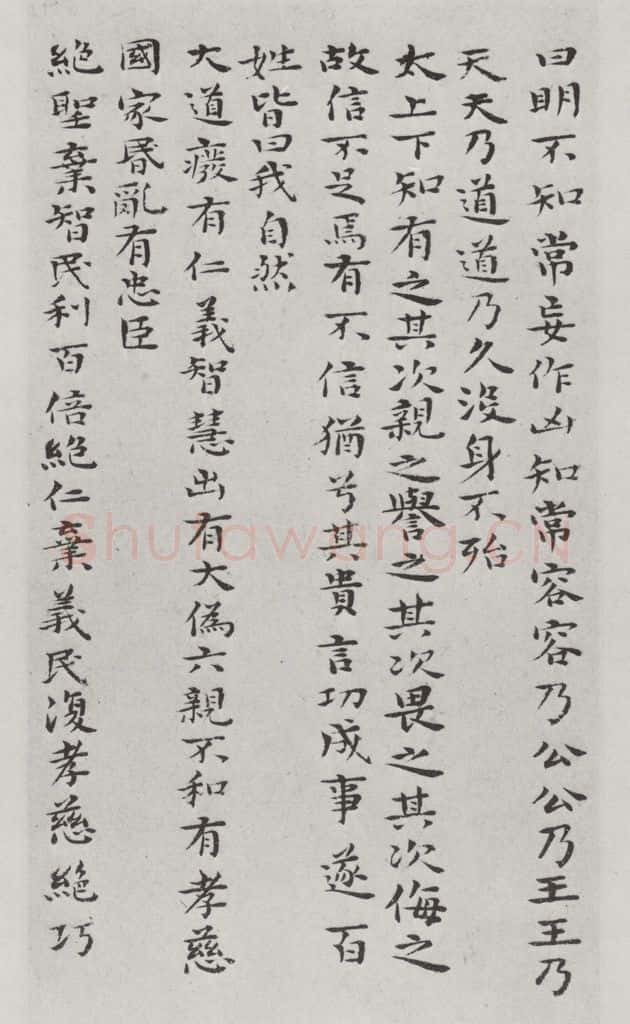 曰明不知常妄作凶知常容容乃公公乃王王乃
天天乃道道乃久沒身不殆
太上下知有之其次親之譽之其次畏之其次侮之
故信不足焉有不信猶兮其貴言功成事遂百
姓皆曰我自然
大道癈有仁義智慧出有大偽六親不和有孝慈
國家昏亂有忠臣
絕聖棄智民利百倍絕仁棄義民復孝慈絕巧
Shufawang.CN